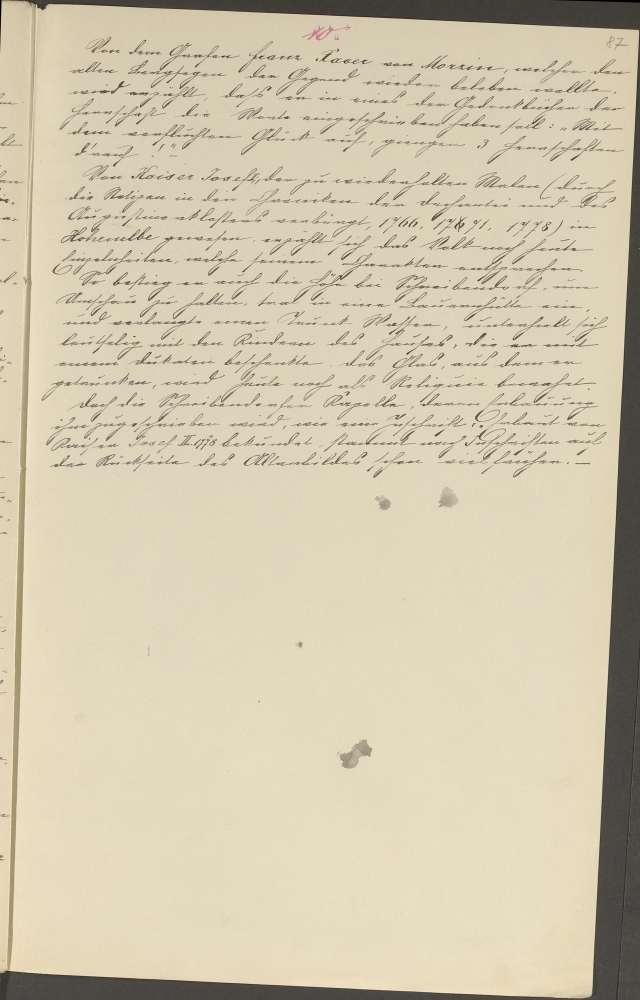 10.
87
Von dem Grafen Franz Xaver von Morzin, welcher den
alten Bergsegen der Gegend wieder beleben wollte,
wird erzählt, dass er in eines der Gedenkbücher der
Herrschaft die Worte eingeschrieben haben soll: „Mit
dem verfluchten Glück auf, giengen 3 Herrschaften
d'rauf!"
Von Kaiser Josef II, der zu wiederholten Malen (durch
die Notizen in den der Dechantei und des
Augustinerklosters verbürgt, 1766, 1771, 1778) in
Hohenelbe gewesen, erzählt sich das Volk noch heute
Einzelheiten, welche seinem Charakter entsprechen.
So bestieg er auch die Höhe bei Schreibendorf, um
Umschau zu halten, trat in eine Bauernhütte ein,
und verlangte einen Trunk Wasser, unterhielt sich
leutselig mit den Kindern des Hauses, die er mit
einem Dukaten beschenkte. das Glas, aus dem er
getrunken, wird heute noch als Reliquie bewahrt.
Doch die Schreibendorfer Kapelle, deren Erbauung
ihm zugeschrieben wird, wie eine Inschrift: „Erbaut von
Kaiser Josef II. 1778 bekundet, stammt nach Inschriften auf
der Rückseite des Altarbildes schon viel früher. —